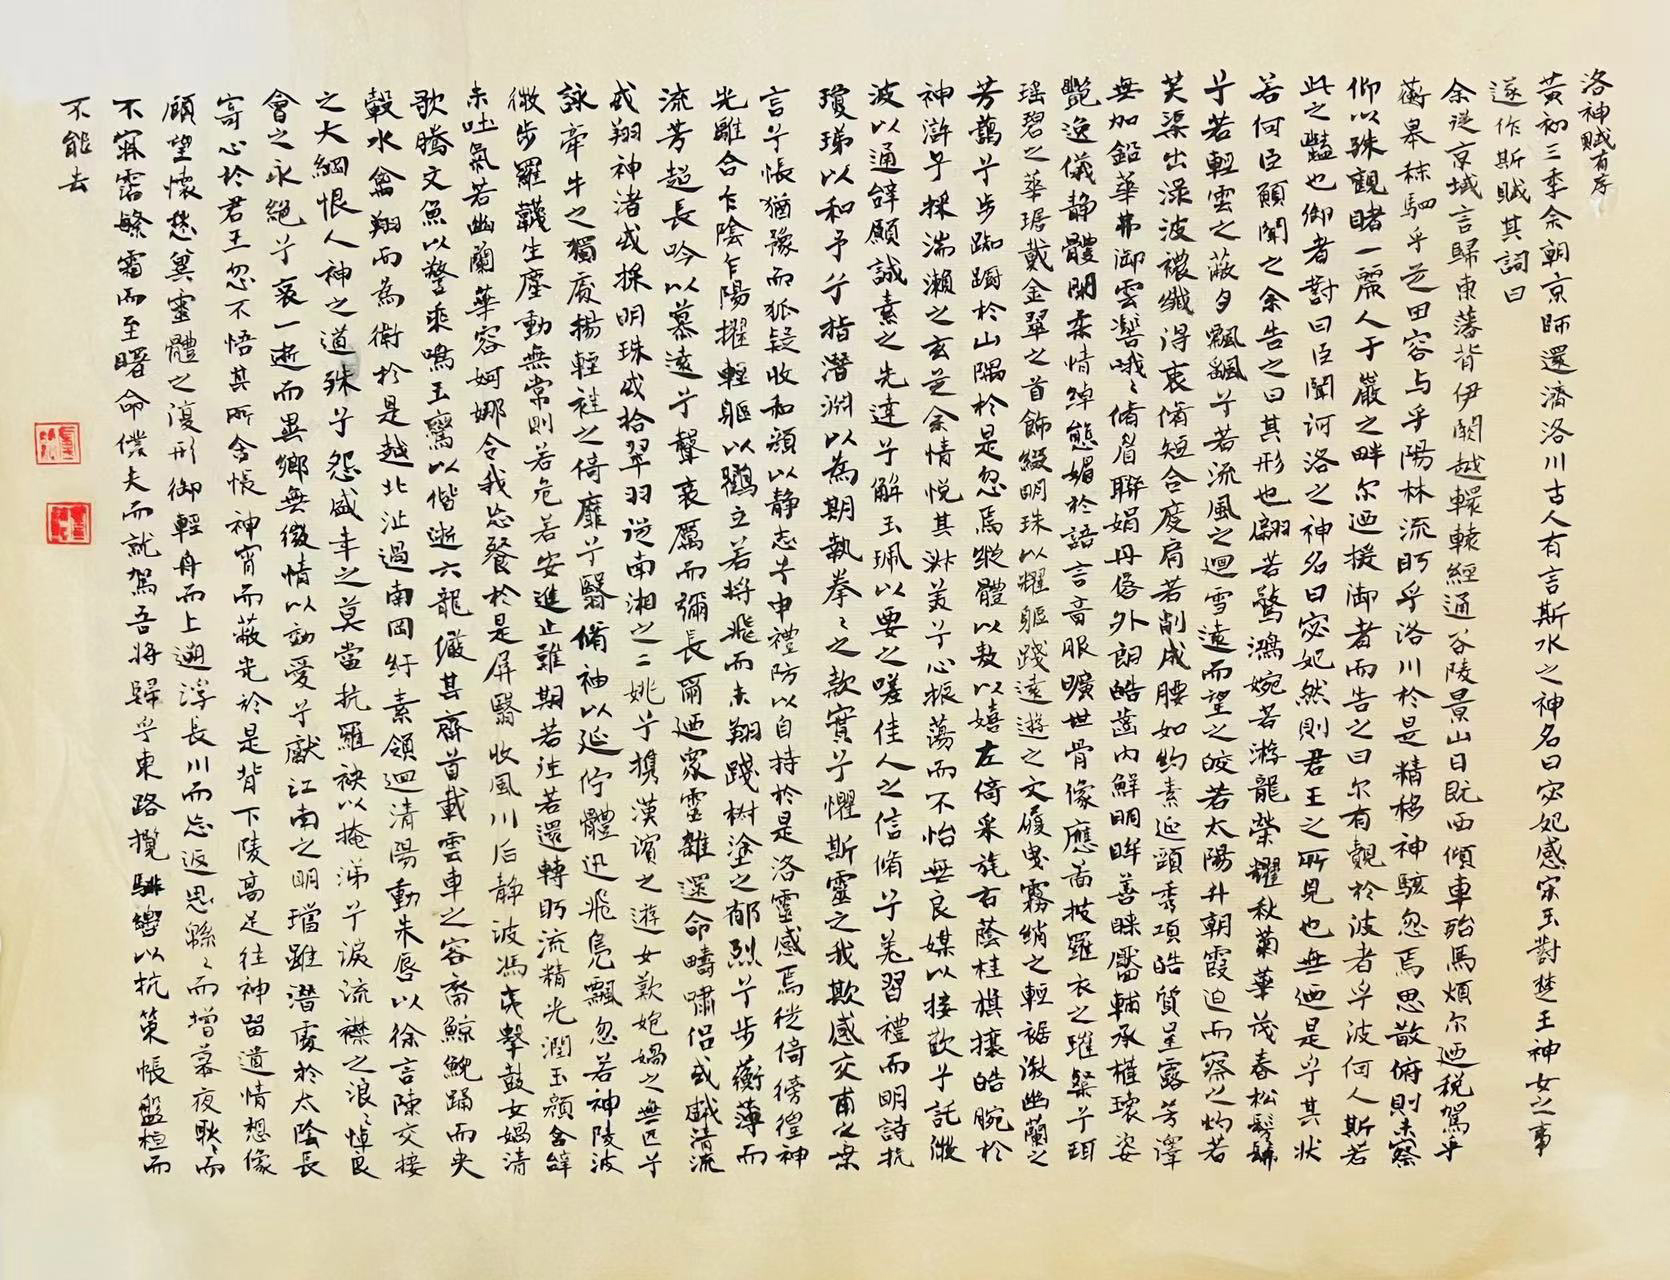 洛神賦有序
黃初三年余朝京師還濟洛川古人有言斯水之神名曰宓妃感宋玉對楚王神女之事
遂作斯賦其詞曰
余從京域言歸東藩背伊闕越轘轅經通谷陵景山日既西傾車殆馬煩尔迺稅駕乎
蘅皋秣駟乎芝田容与乎陽林流眄乎洛川於是精移神駭忽焉思散俯則未察
仰以殊觀睹一麗人于巖之畔尔迺援御者而告之曰尔有覿於彼者乎彼何人斯若
此之豔也御者對曰臣聞河洛之神名曰宓妃然則君王之所見也無迺是乎其状
若何臣願聞之余告之曰其形也翩若驚鴻婉若游龍榮耀秋菊華茂春松髣髴
兮若輕雲之蔽月飄飖兮若流風之迴雪遠而望之皎若太陽升朝霞迫而察之灼若
芙蕖出淥波襛纖得衷脩短合度肩若削成腰如約素延頸秀項皓質呈露芳澤
無加鉛華弗御雲髻峨〻脩眉聯娟丹脣外朗皓齒內鮮明眸善睞靨輔承權瓌姿
艷逸儀静體閑柔情綽態媚於語言奇服曠世骨像應啚披羅衣之璀粲兮珥
瑤碧之華琚戴金翠之首飾綴明珠以耀軀踐遠遊之文履曳霧綃之輕裾微幽蘭之
芳藹兮步踟躕於山隅於是忽焉縱體以敖以嬉左倚采旄右蔭桂棋攘皓腕於
神滸兮採湍瀨之玄芝余情悅其淑美兮心振蕩而不怡無良媒以接歡兮託微
波以通辞願誠素之先達兮解玉珮以要之嗟佳人之信脩兮羌習禮而明詩抗
瓊珶以和予兮兮指潛淵以為期執拳〻之款實兮懼斯靈之我欺感交甫之棄
言兮悵猶豫而狐疑收和顏以静志兮申禮防以自持於是洛靈感焉徙倚徬徨神
光離合乍陰乍陽擢輕軀以鶴立若將飛而未翔踐椒塗之郁烈兮步蘅薄而
流芳超長吟以慕遠兮聲哀厲而彌長爾迺眾靈雜遝命疇嘯侣或戲清流
或翔神渚或採明珠或拾翠羽從南湘之二姚兮携漢濱之遊女歎匏媧之無匹兮
詠牽牛之獨處揚輕袿之倚靡兮翳脩袖以延佇體迅飛鳧飄忽若神陵波
微步羅韈生塵動無常則若危若安進止難期若往若還轉眄流精光潤玉顏含辞
未吐氣若幽蘭華容婀娜令我忘餐於是屏翳收風川后静波馮夷擊鼓女媧清
歌騰文魚以警乘鳴玉鸞以偕逝六龍儼其齊首載雲車之容裔鯨鯢踊而夹
轂水禽翔而為衛於是越北沚過南岡紆素領迴清陽動朱唇以徐言陳交接
之大綱恨人神之道殊兮怨盛年之莫當抗羅袂以掩涕兮淚流襟之浪〻悼良
會之永絕兮哀一逝而異鄉無微情以効愛兮獻江南之明璫雖潛處於太陰長
寄心於君王忽不悟其所舍悵神宵而蔽光於是背下陵高足往神留遺情想像
顧望懷愁冀靈體之復形御輕舟而上遡浮長川而忘返思緜〻而增慕夜耿〻而
不寐霑繁霜而至曙命僕夫而就駕吾將歸乎東路攬騑轡以抗策悵盤桓而
不能去